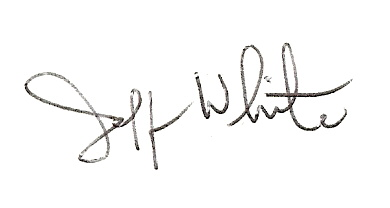 Jeff White